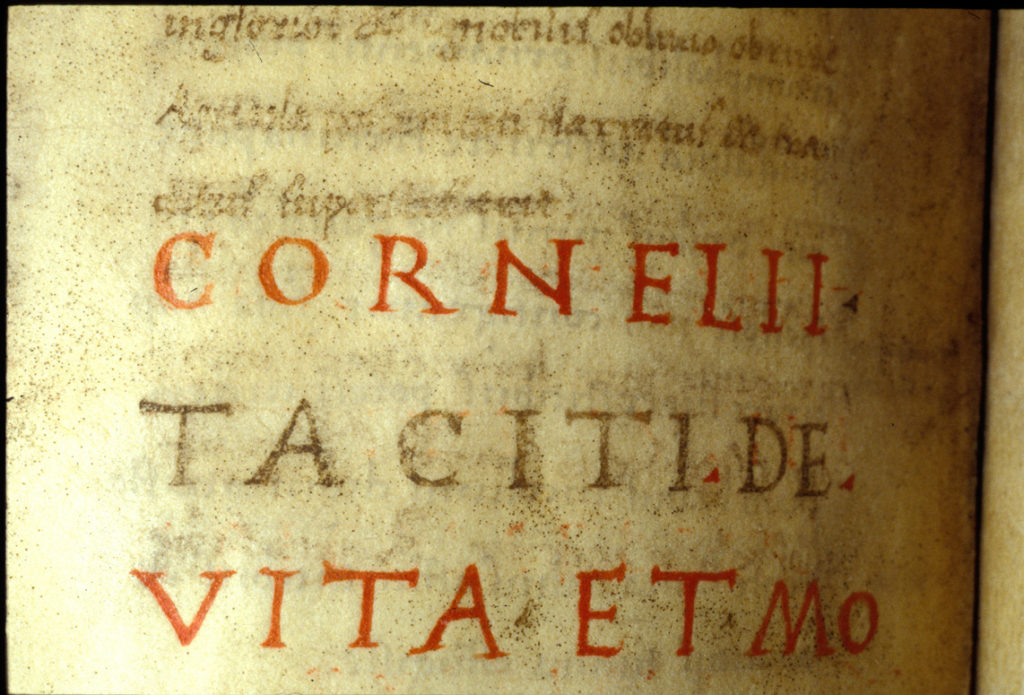 inglorios & ignobiles oblivio obruet
Agricola posteritati narratus & tra
ditus superstes erit
CORNELII
TACITI · DE ·
VITA ET MO